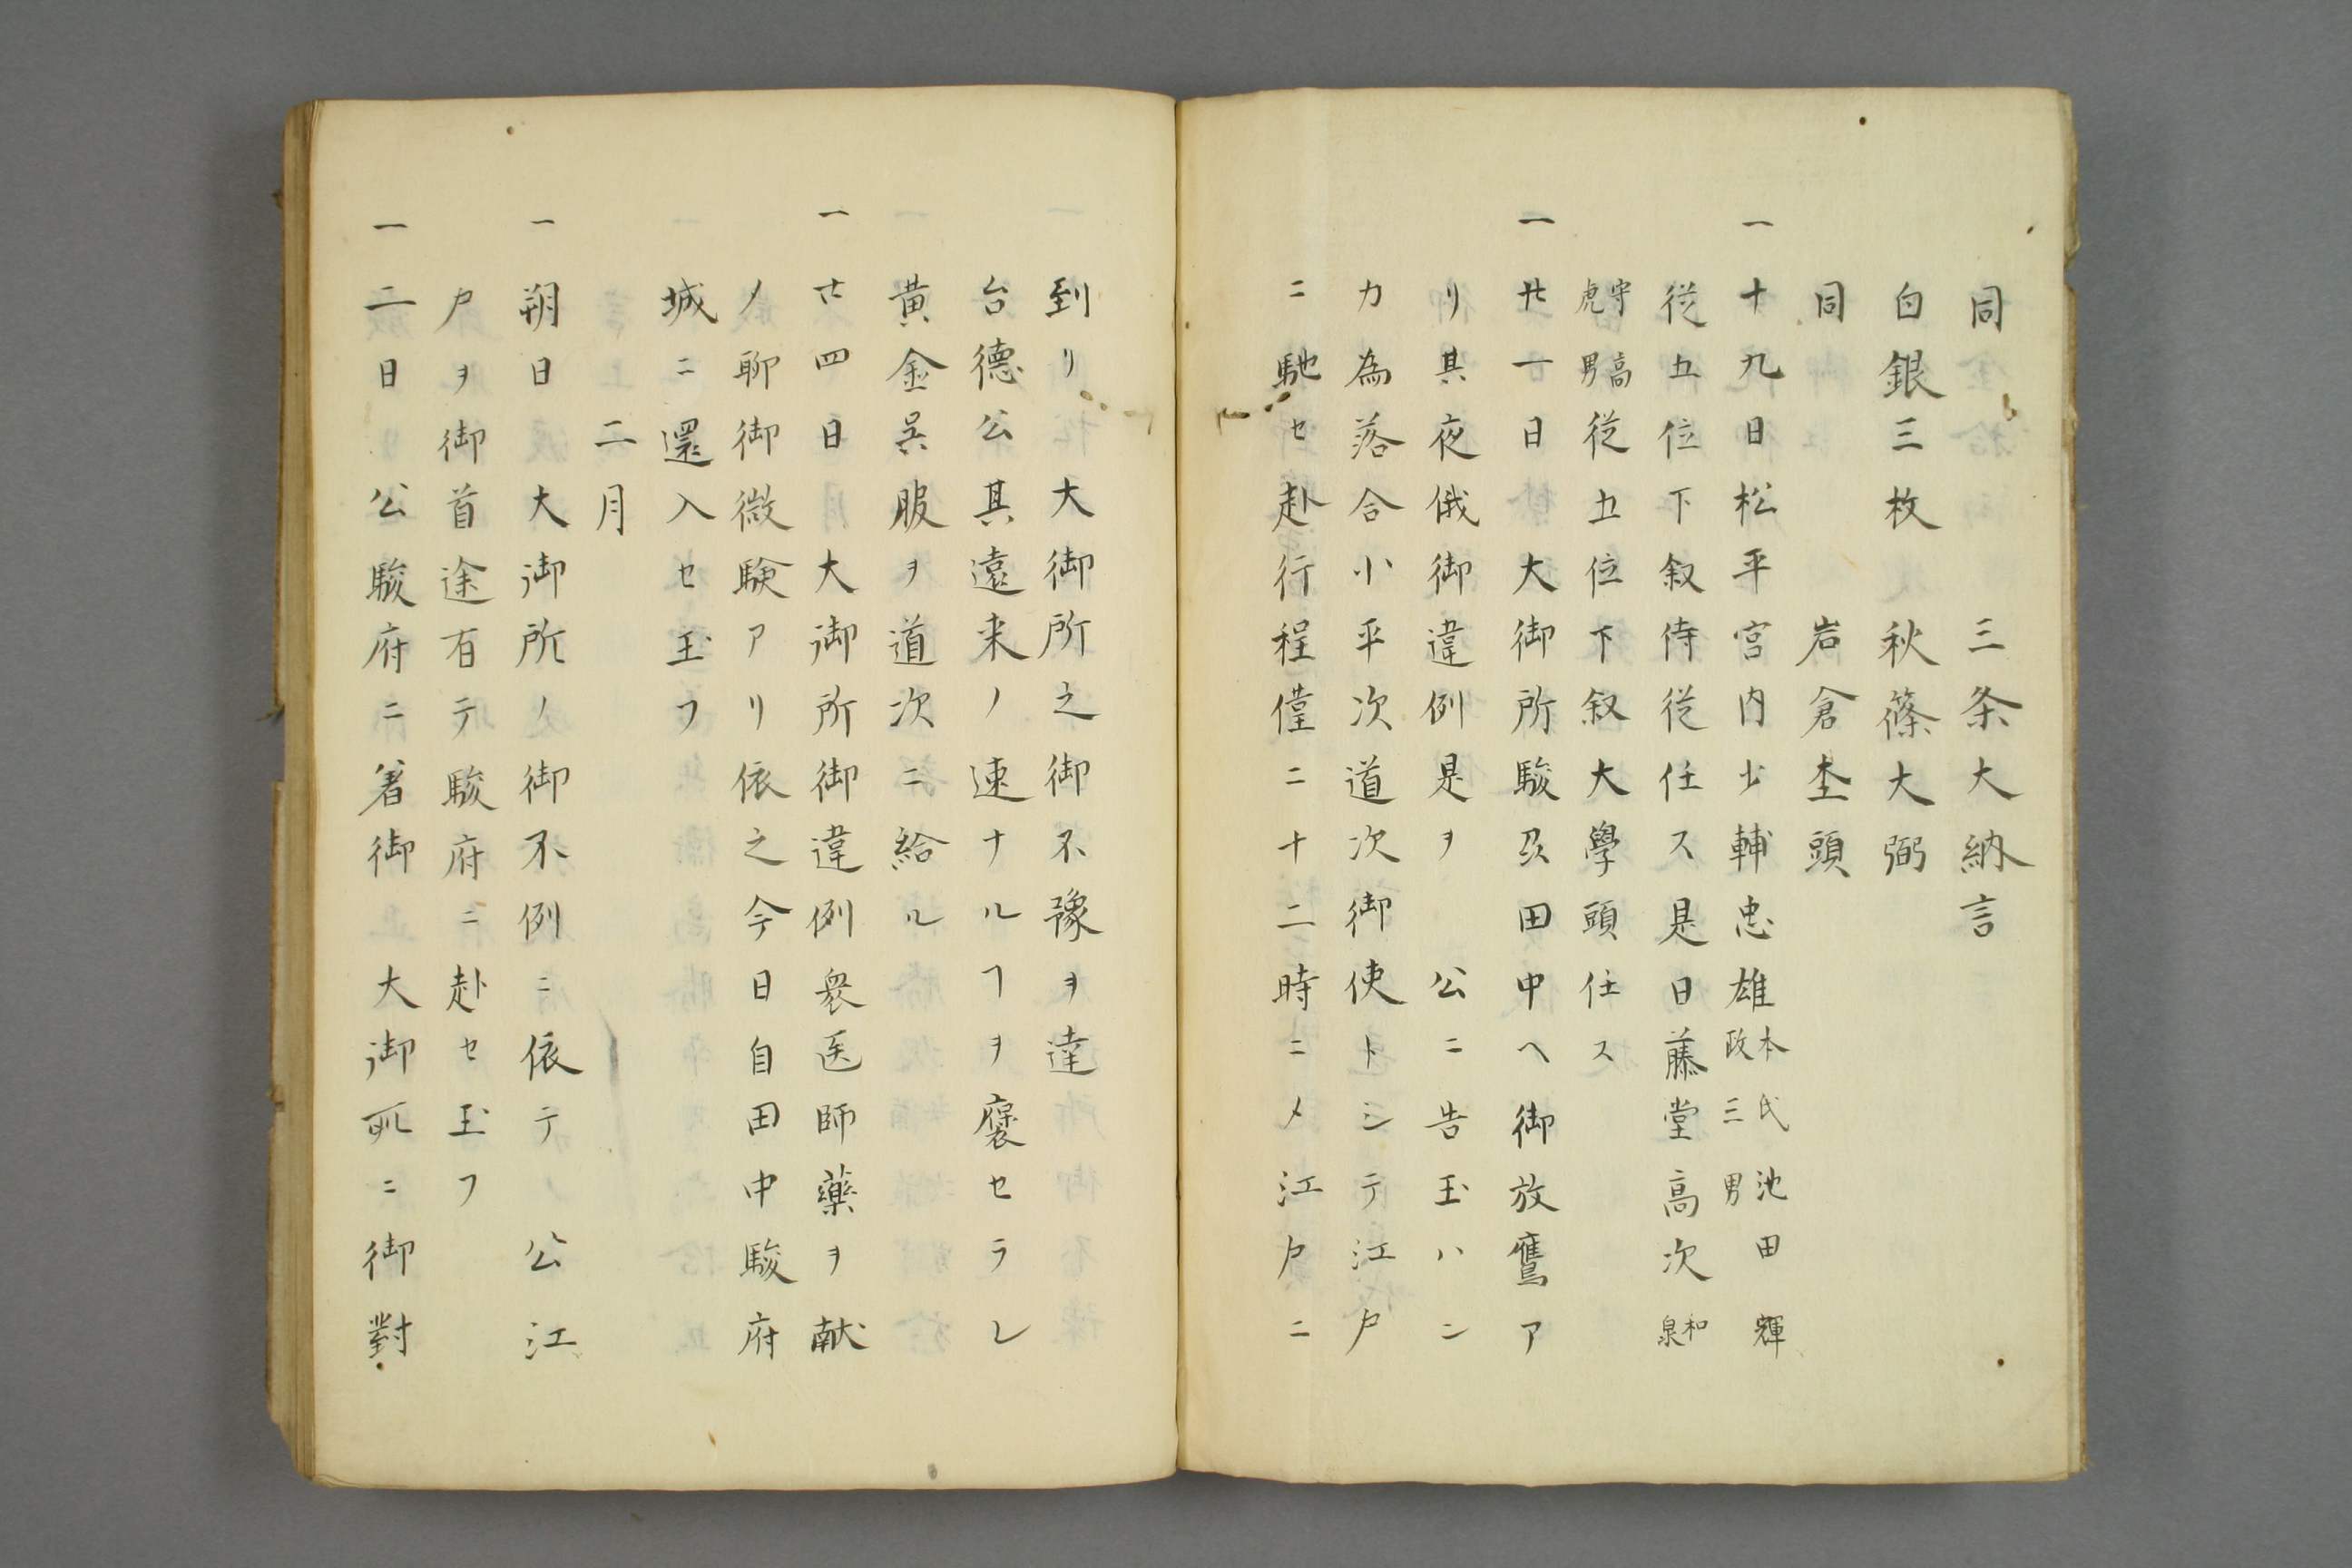 同　三条大納言
白銀三枚　秋篠大弼
同　岩倉杢頭
一十九日松平宮内少輔忠雄本氏池田輝政三男
従五位下叙侍従任ス是日藤堂高次和泉
守高虎男従五位下叙大學頭任ス
一廿一日　大御所駿及田中ヘ御放鷹ア
リ其夜俄御違例是ヲ　公ニ告玉ハン
カ為落合小平次道次御使トシテ江戸
ニ馳セ赴行程僅ニ十二時ニ〆江戸ニ
到リ　大御所之御不豫ヲ達
台德公其遠来ノ速ナルヿヲ褒セラレ
黄金呉服ヲ道次ニ給ル
一廿四日　大御所御違例衆医師藥ヲ献
ノ聊御微験アリ依之今日自田中駿府
城ニ還入セ玉フ
二月
一朔日　大御所ノ御不例ニ依テ　公江
戸ヲ御首途有テ駿府ニ赴セ玉フ
一二日　公駿府ニ着御　大御所ニ御對